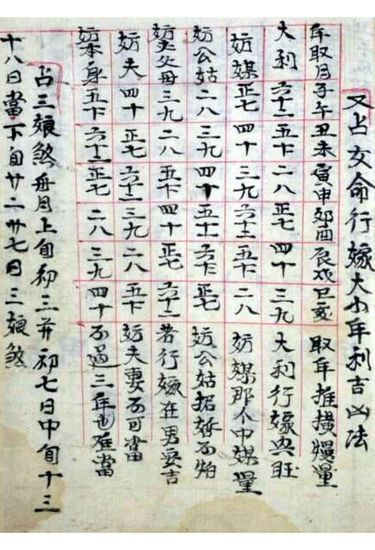 又占女命行嫁大小年利吉凶法
年取月子午丑未寅申卯酉辰戌巳亥 取年推撰慢量
大利 六十二 五十一 二八 正七 四十 三九 大利行嫁興旺
妨媒 正七 四十 三九 六十二 五十一 二八 妨媒那个中媒量
妨公姑 二八 三九 四十 五十一 六十二 正七 妨公姑招好不怕
妨父母 三九 二八 五十一 四十 正七 六十二 若行嫁在男家吉
妨夫 四十 正七 六十二 三九 二八 五十一 妨夫妻不可當
妨本身 五十一 六十二 正七 二八 三九 四十 不過三年也难當
占三娘煞每月上旬初三并初七日中旬十三
十八日當下旬廿二廿七日三娘煞